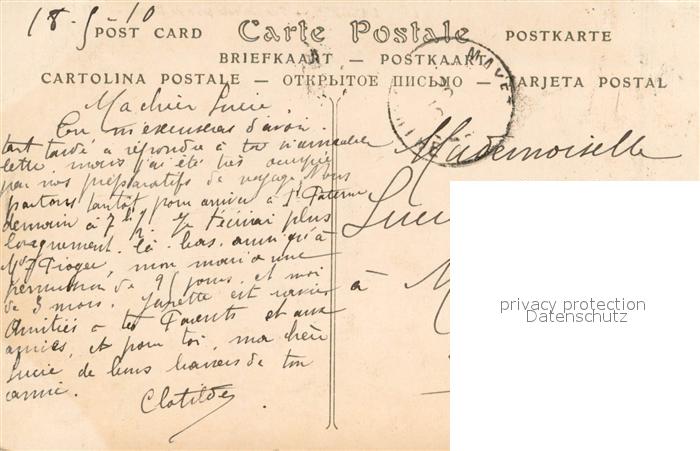 18-5-10
POST CARD Carte Postale POSTKARTE
BRIEFKAART — POSTKAART
CARTOLINA POSTALE — ОТКРЫТОЕ ПИСЬМО — TARJETA POSTAL
Ma chère Lucie,
Tu m'excuseras d'avoir
tant tardé à répondre à ton
lettre, mais j'ai été très occupée
par nos préparatifs de voyage. Nous
partons tantôt pour arriver à St Paterne
demain à 7h ½. Je t'écrirai plus
longuement là-bas, ainsi qu'à
mon mari a une
permission de jours, et moi
de 3 mois. est ravie
Amitiés à tes Parents et aux
amies, et pour toi, ma chère
Lucie de bons baisers de ton
amie.
Clotilde
Mademoiselle
Luci
à M
privacy protection
Datenschutz